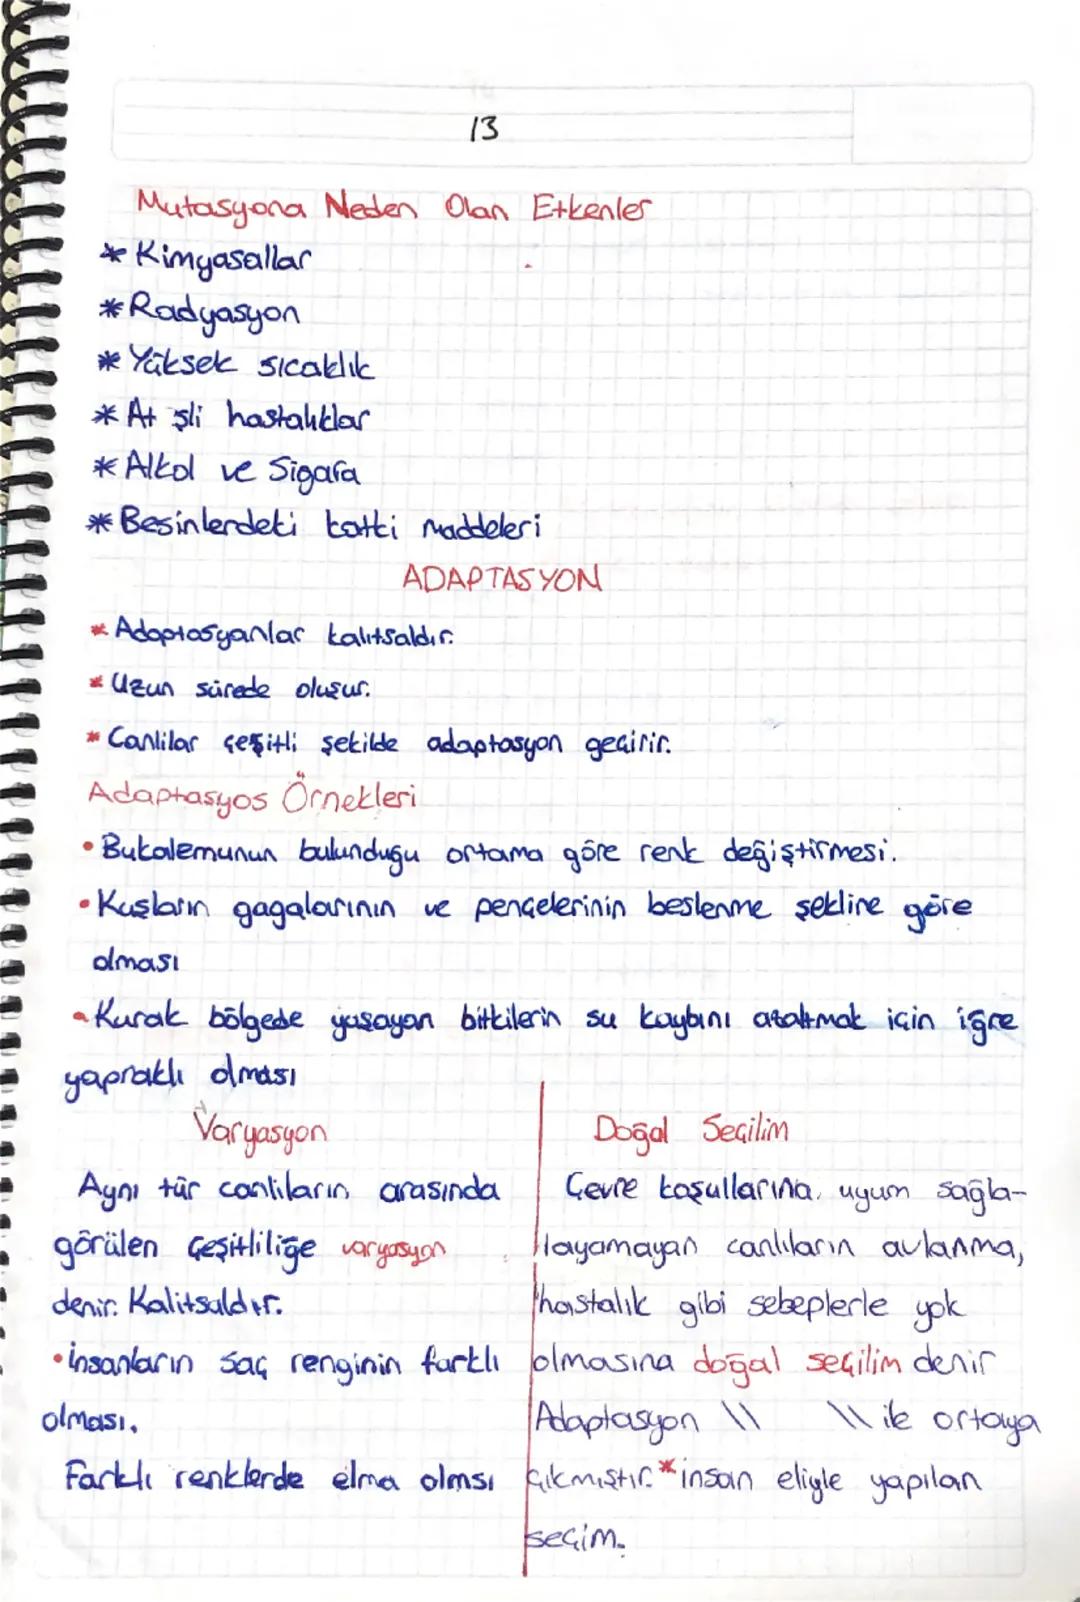 13
Mutasyona Neden Olan Etkenler
* Kimyasallar
* Radyasyon
* Yüksek sıcaklık
* At şli hastalıklar
* Alkol ve Sigara
* Besinlerdeki katki maddeleri
ADAPTASYON
* Adaptasyonlar kalıtsaldır.
* Uzun sürede oluşur.
* Canlilar çeşitli şekilde adaptasyon geçirir.
Adaptasyos Örnekleri
• Bukalemunun bulunduğu ortama göre renk değiştirmesi.
• Kuşların gagalarının ve pençelerinin beslenme şekline göre
olması
• Kurak bölgede yaşayan bitkilerin su kaybını azaltmak için iğne
yapraklı olması
Varyasyon
Aynı tür canlıların arasında
görülen çeşitliliğe varyasyon
denir. Kalitsaldır.
• insanların saç renginin farklı
olması.
Farklı renklerde elma olmsı
Doğal Seçilim
Çevre koşullarına uyum sağla-
layamayan canlıların avlanma,
hastalık gibi sebeplerle yok
olmasına doğal seçilim denir
Adaptasyon \\ \\ ile ortaya
çıkmıştır. * insan eliyle yapılan
seçim.